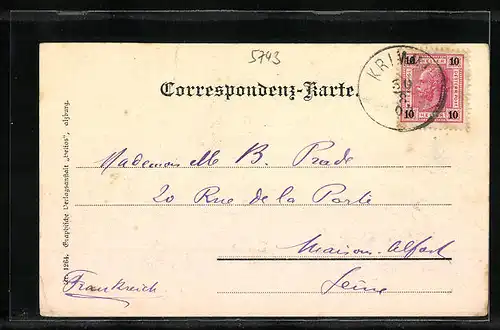 5743
Correspondenz-Karte.
KRIM
10 10
10 10
Mademoiselle B. Prade
20 Rue de la Porte
Maison-Alfort
Seine
Frankreich
1264. Graphische Verlagsanstalt „Helios",